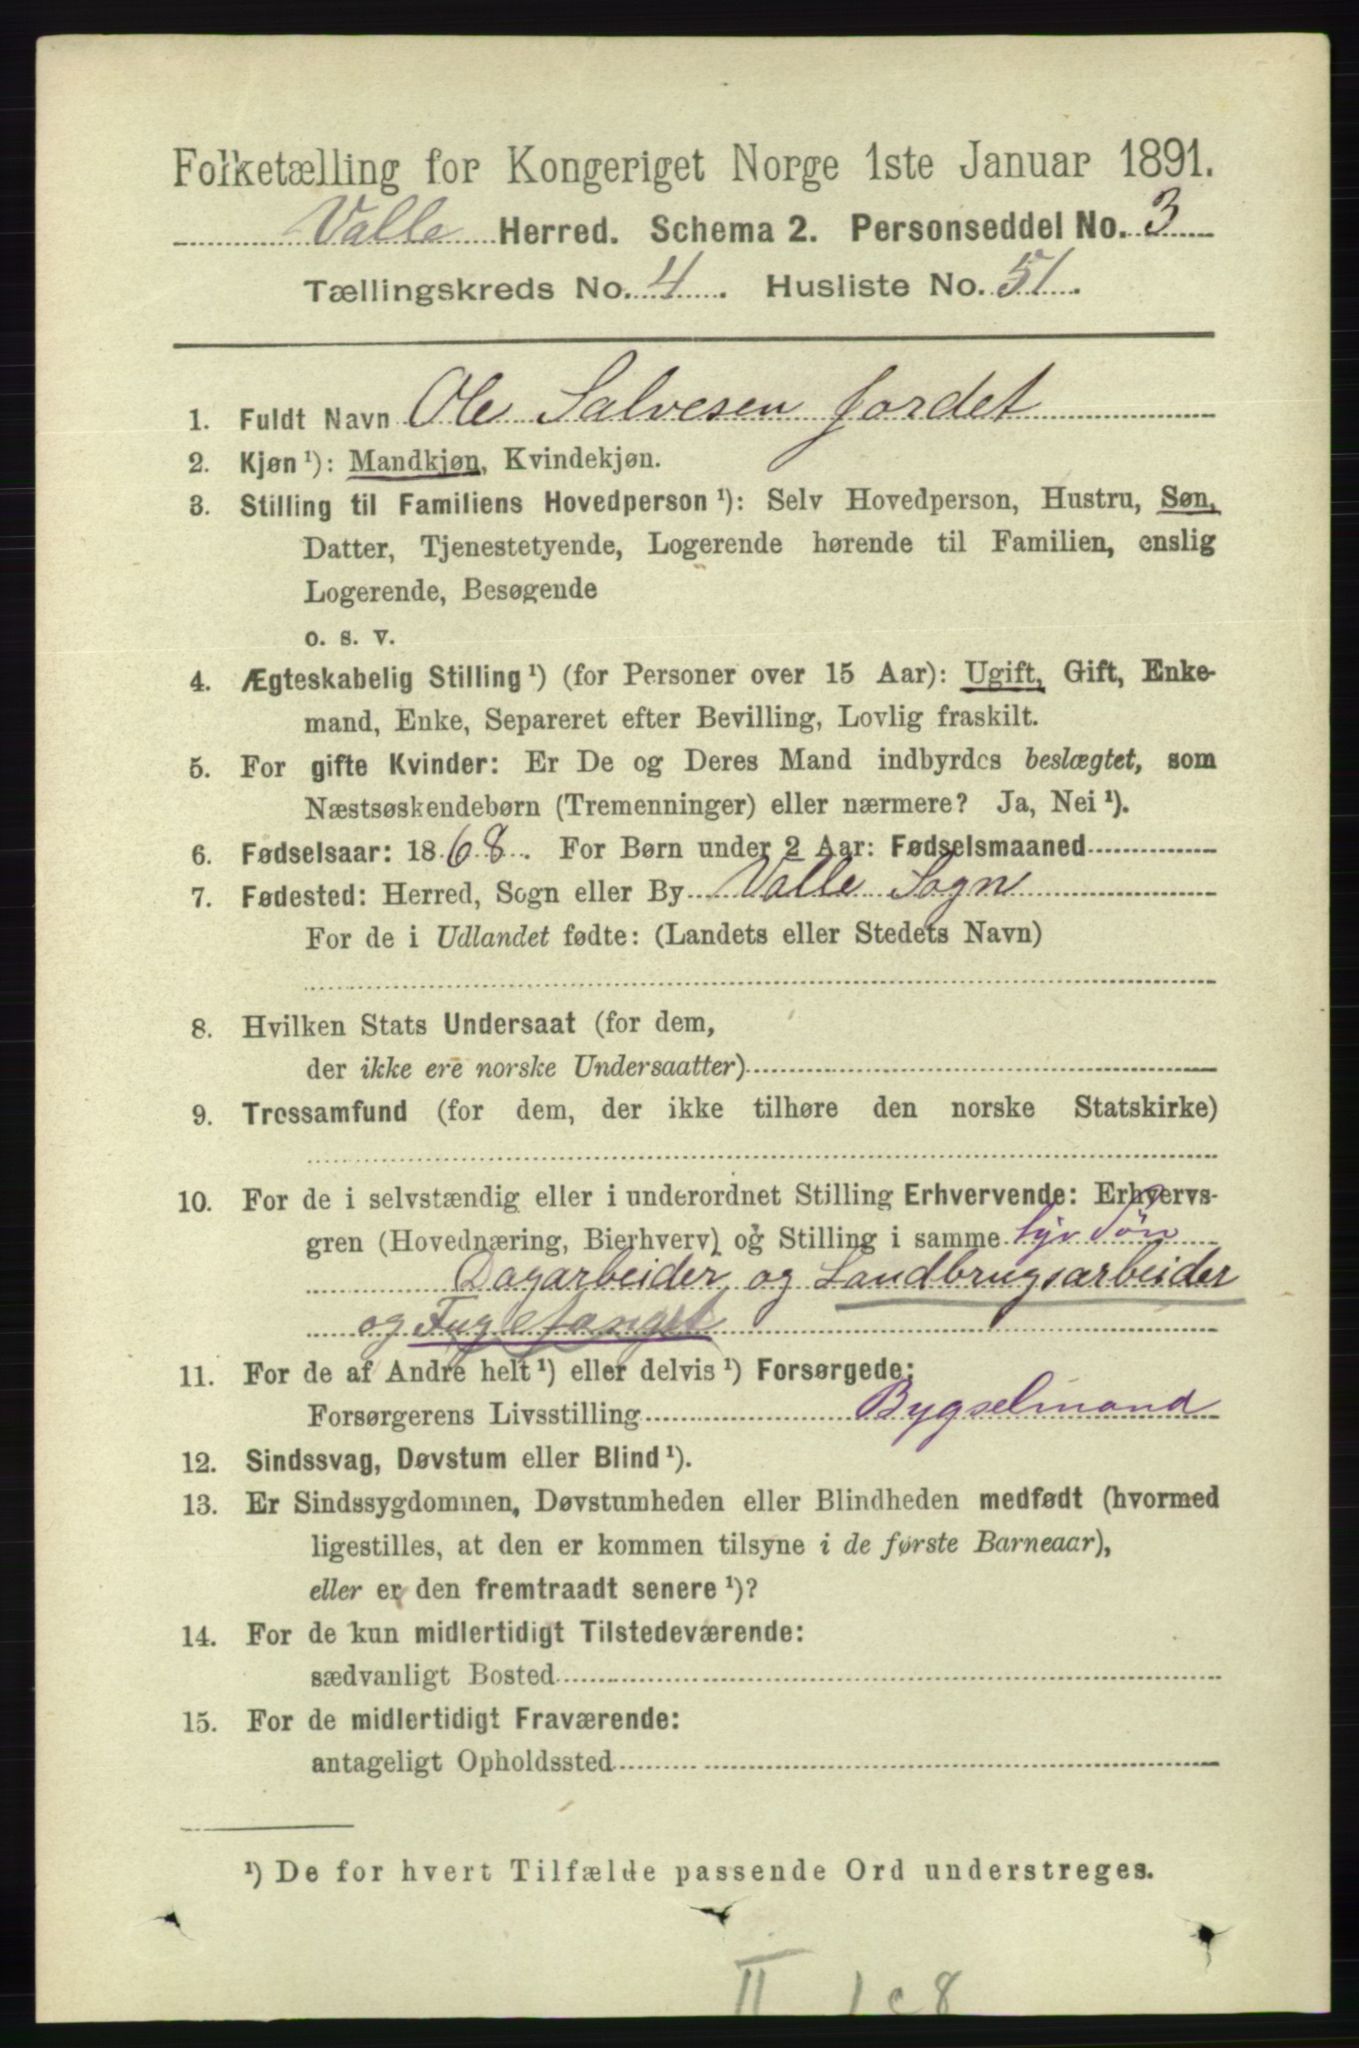 Folketælling for Kongeriget Norge 1ste Januar 1891.
Valle Herred. Schema 2. Personseddel No. 3
Tællingskreds No. 4. Husliste No. 51.
1. Fuldt Navn Ole Salvesen Jordet
2. Kjøn ¹): Mandkjøn, Kvindekjøn.
3. Stilling til Familiens Hovedperson ¹): Selv Hovedperson, Hustru, Søn,
Datter, Tjenestetyende, Logerende hørende til Familien, enslig
Logerende, Besøgende
o. s. v.
4. Ægteskabelig Stilling ¹) (for Personer over 15 Aar): Ugift, Gift, Enke-
mand, Enke, Separeret efter Bevilling, Lovlig fraskilt.
5. For gifte Kvinder: Er De og Deres Mand indbyrdes beslægtet, som
Næstsøskendebørn (Tremenninger) eller nærmere? Ja, Nei ¹).
6. Fødselsaar: 1868. For Børn under 2 Aar: Fødselsmaaned
7. Fødested: Herred, Sogn eller By Valle Sogn
For de i Udlandet fødte: (Landets eller Stedets Navn)
8. Hvilken Stats Undersaat (for dem,
der ikke ere norske Undersaatter)
9. Trossamfund (for dem, der ikke tilhøre den norske Statskirke)
10. For de i selvstændig eller i underordnet Stilling Erhvervende: Erhvervs-
gren (Hovednæring, Bierhverv) og Stilling i samme Søn
Dagarbeider og Landbrugsarbeider
og Fuglefangst
11. For de af Andre helt ¹) eller delvis ¹) Forsørgede:
Forsørgerens Livsstilling Bygselmand
12. Sindssvag, Døvstum eller Blind ¹).
13. Er Sindssygdommen, Døvstumheden eller Blindheden medfødt (hvormed
ligestilles, at den er kommen tilsyne i de første Barneaar),
eller er den fremtraadt senere ¹)?
14. For de kun midlertidigt Tilstedeværende:
sædvanligt Bosted
15. For de midlertidigt Fraværende:
antageligt Opholdssted
¹) De for hvert Tilfælde passende Ord understreges.
II 1c8